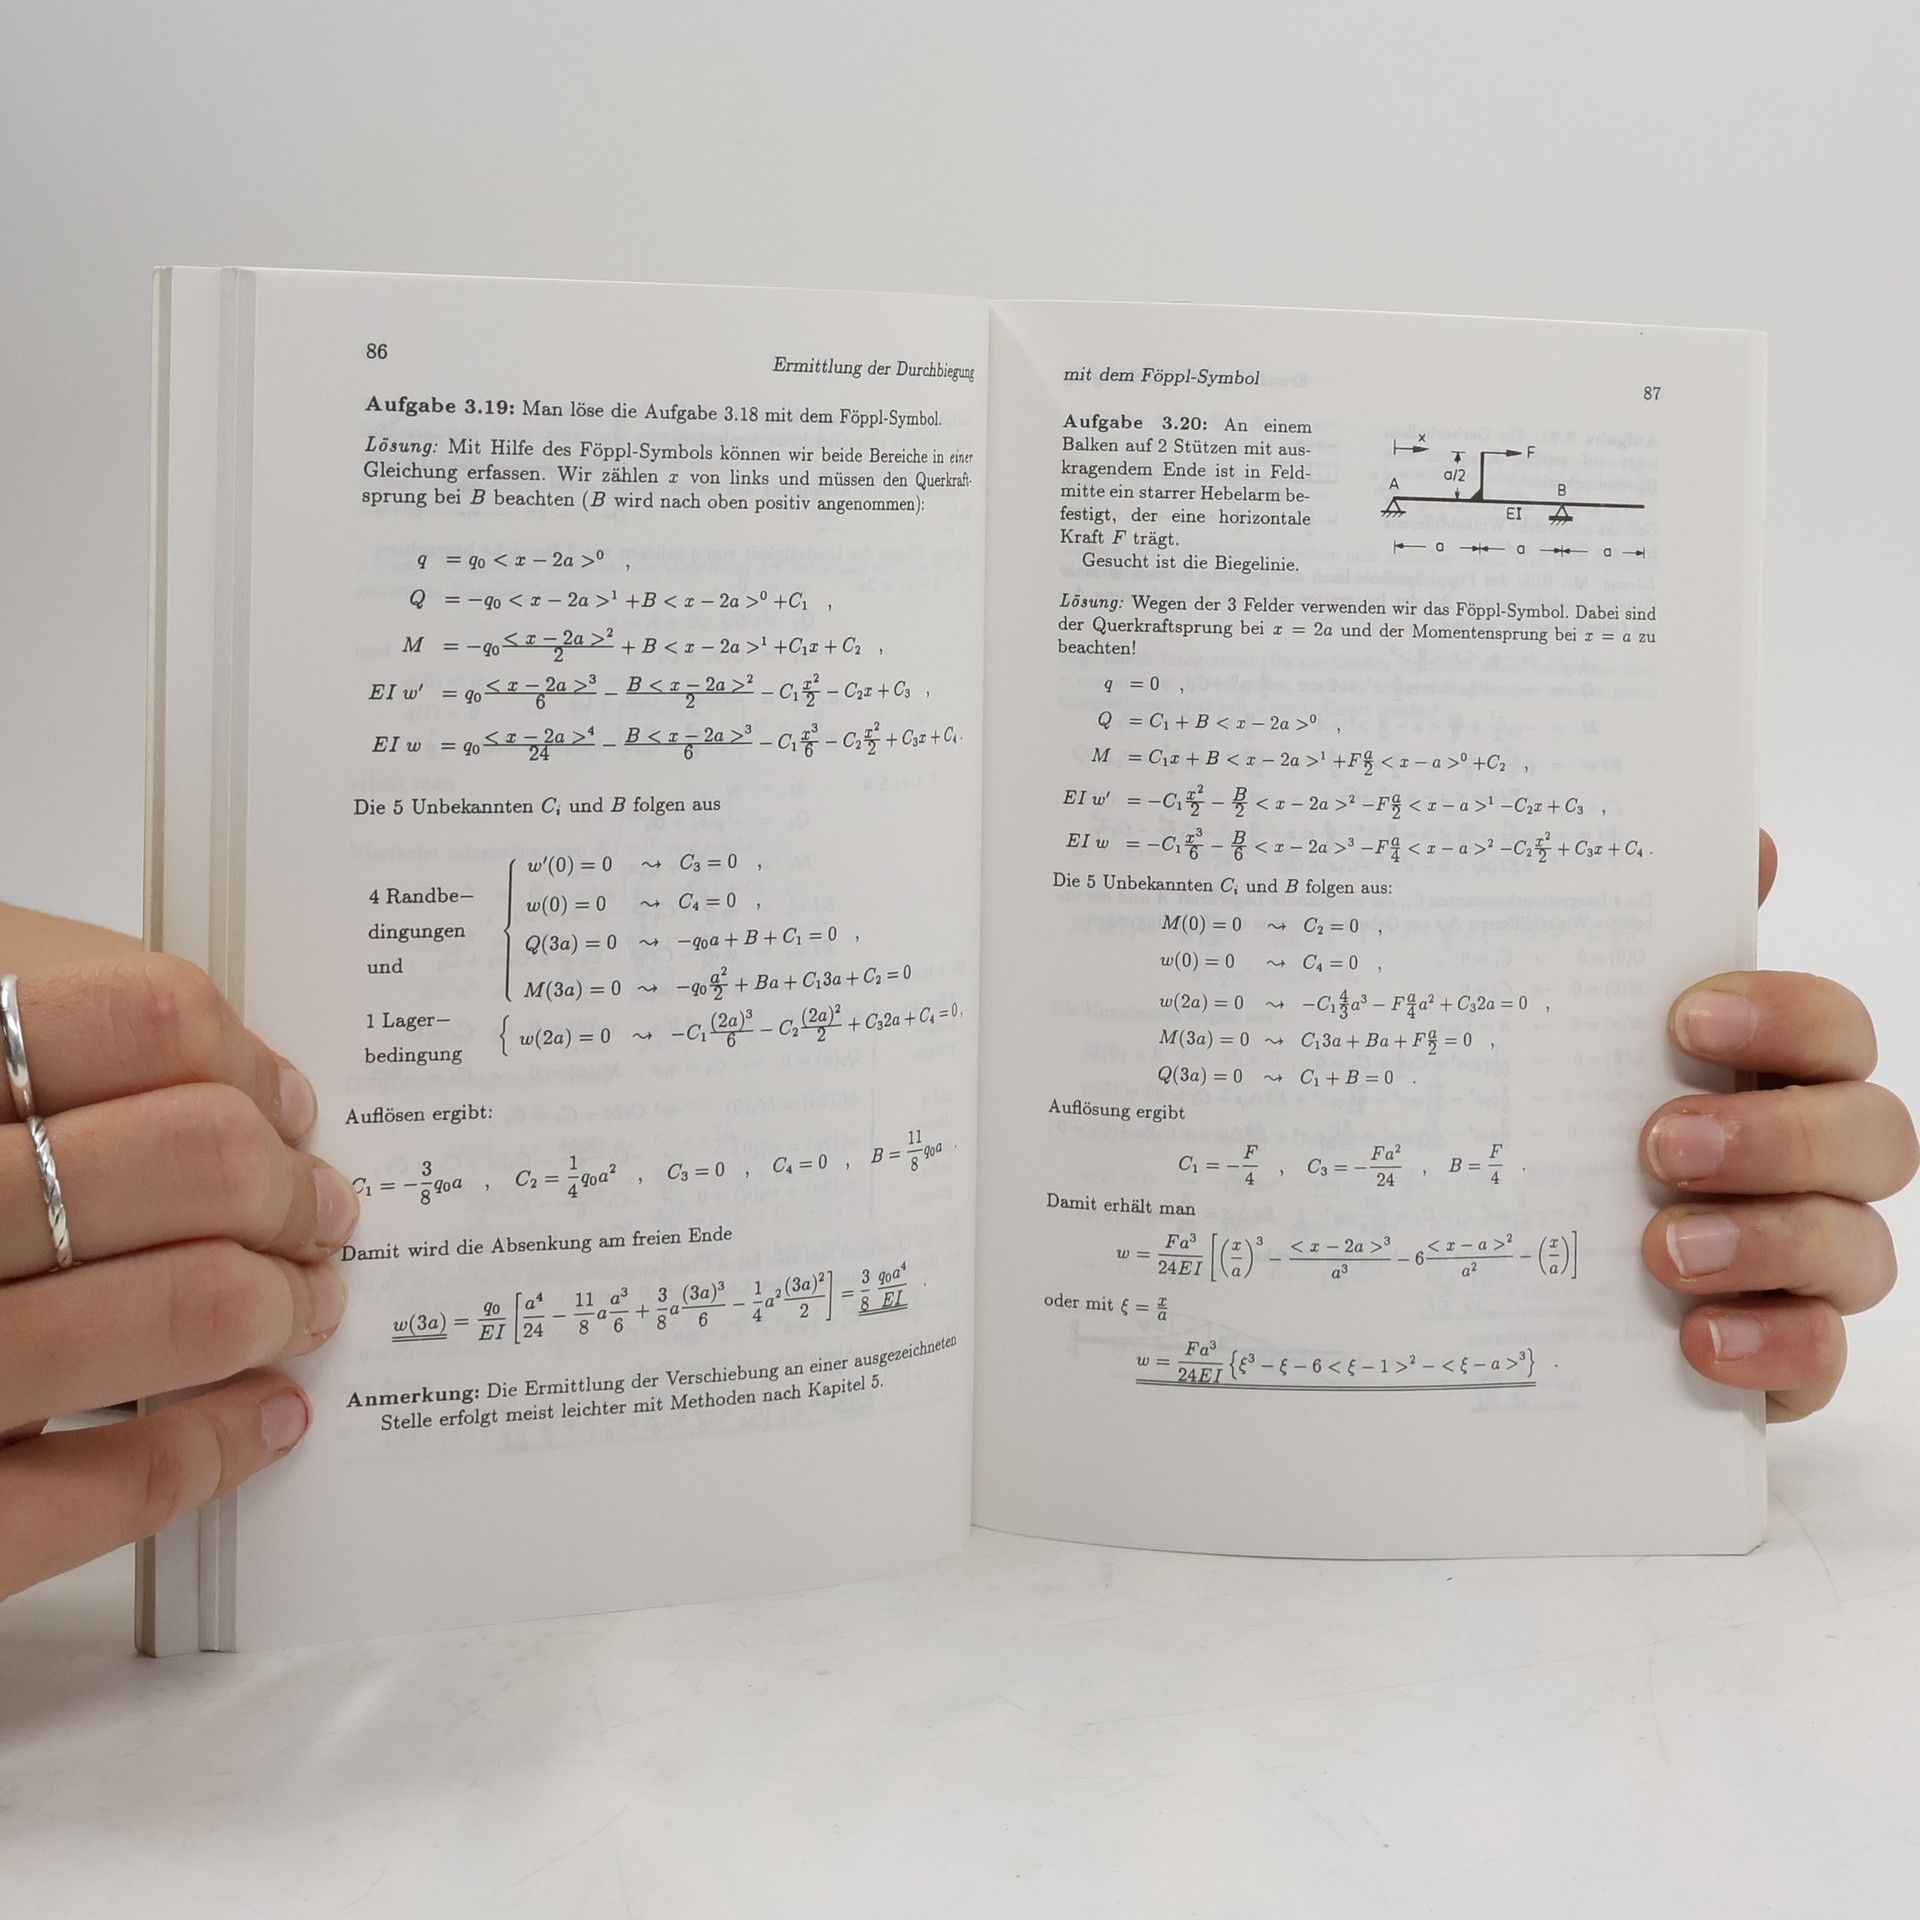 86
Ermittlung der Durchbiegung
Aufgabe 3.19: Man löse die Aufgabe 3.18 mit dem Föppl-Symbol.
Lösung: Mit Hilfe des Föppl-Symbols können wir beide Bereiche in einer
Gleichung erfassen. Wir zählen x von links und müssen den Querkraft-
sprung bei B beachten (B wird nach oben positiv angenommen):
q = q₀ < x − 2a >⁰ ,
Q = −q₀ < x − 2a >¹ +B < x − 2a >⁰ +C₁ ,
M = −q₀ < x − 2a >²/2 + B < x − 2a >¹ +C₁x + C₂ ,
EI w′ = q₀ < x − 2a >³/6 − B < x − 2a >²/2 − C₁ x²/2 − C₂x + C₃ ,
EI w = q₀ < x − 2a >⁴/24 − B < x − 2a >³/6 − C₁ x³/6 − C₂ x²/2 + C₃x + C₄ .
Die 5 Unbekannten Cᵢ und B folgen aus
4 Randbe−
dingungen
und
w′(0) = 0 ⇝ C₃ = 0 ,
w(0) = 0 ⇝ C₄ = 0 ,
Q(3a) = 0 ⇝ −q₀a + B + C₁ = 0 ,
M(3a) = 0 ⇝ −q₀ a²/2 + Ba + C₁3a + C₂ = 0
1 Lager−
bedingung
w(2a) = 0 ⇝ −C₁ (2a)³/6 − C₂ (2a)²/2 + C₃2a + C₄ = 0 ,
Auflösen ergibt:
C₁ = −3/8 q₀a , C₂ = 1/4 q₀a² , C₃ = 0 , C₄ = 0 , B = 11/8 q₀a .
Damit wird die Absenkung am freien Ende
w(3a) = q₀/EI [a⁴/24 − 11/8 a a³/6 + 3/8 a (3a)³/6 − 1/4 a² (3a)²/2] = 3/8 q₀a⁴/EI .
Anmerkung: Die Ermittlung der Verschiebung an einer ausgezeichneten
Stelle erfolgt meist leichter mit Methoden nach Kapitel 5.
mit dem Föppl-Symbol
87
Aufgabe 3.20: An einem
Balken auf 2 Stützen mit aus-
kragendem Ende ist in Feld-
mitte ein starrer Hebelarm be-
festigt, der eine horizontale
Kraft F trägt.
Gesucht ist die Biegelinie.
x
F
a/2
A
B
EI
a a a
Lösung: Wegen der 3 Felder verwenden wir das Föppl-Symbol. Dabei sind
der Querkraftsprung bei x = 2a und der Momentensprung bei x = a zu
beachten!
q = 0 ,
Q = C₁ + B < x − 2a >⁰ ,
M = C₁x + B < x − 2a >¹ +F a/2 < x − a >⁰ +C₂ ,
EI w′ = −C₁ x²/2 − B/2 < x − 2a >² −F a/2 < x − a >¹ −C₂x + C₃ ,
EI w = −C₁ x³/6 − B/6 < x − 2a >³ −F a/4 < x − a >² −C₂ x²/2 + C₃x + C₄ .
Die 5 Unbekannten Cᵢ und B folgen aus:
M(0) = 0 ⇝ C₂ = 0 ,
w(0) = 0 ⇝ C₄ = 0 ,
w(2a) = 0 ⇝ −C₁ 4/3 a³ − F a/4 a² + C₃2a = 0 ,
M(3a) = 0 ⇝ C₁3a + Ba + F a/2 = 0 ,
Q(3a) = 0 ⇝ C₁ + B = 0 .
Auflösung ergibt
C₁ = −F/4 , C₃ = −Fa²/24 , B = F/4 .
Damit erhält man
w = Fa³/24EI [(x/a)³ − < x − 2a >³/a³ − 6 < x − a >²/a² − (x/a)]
oder mit ξ = x/a
w = Fa³/24EI {ξ³ − ξ − 6 < ξ − 1 >² − < ξ − a >³} .